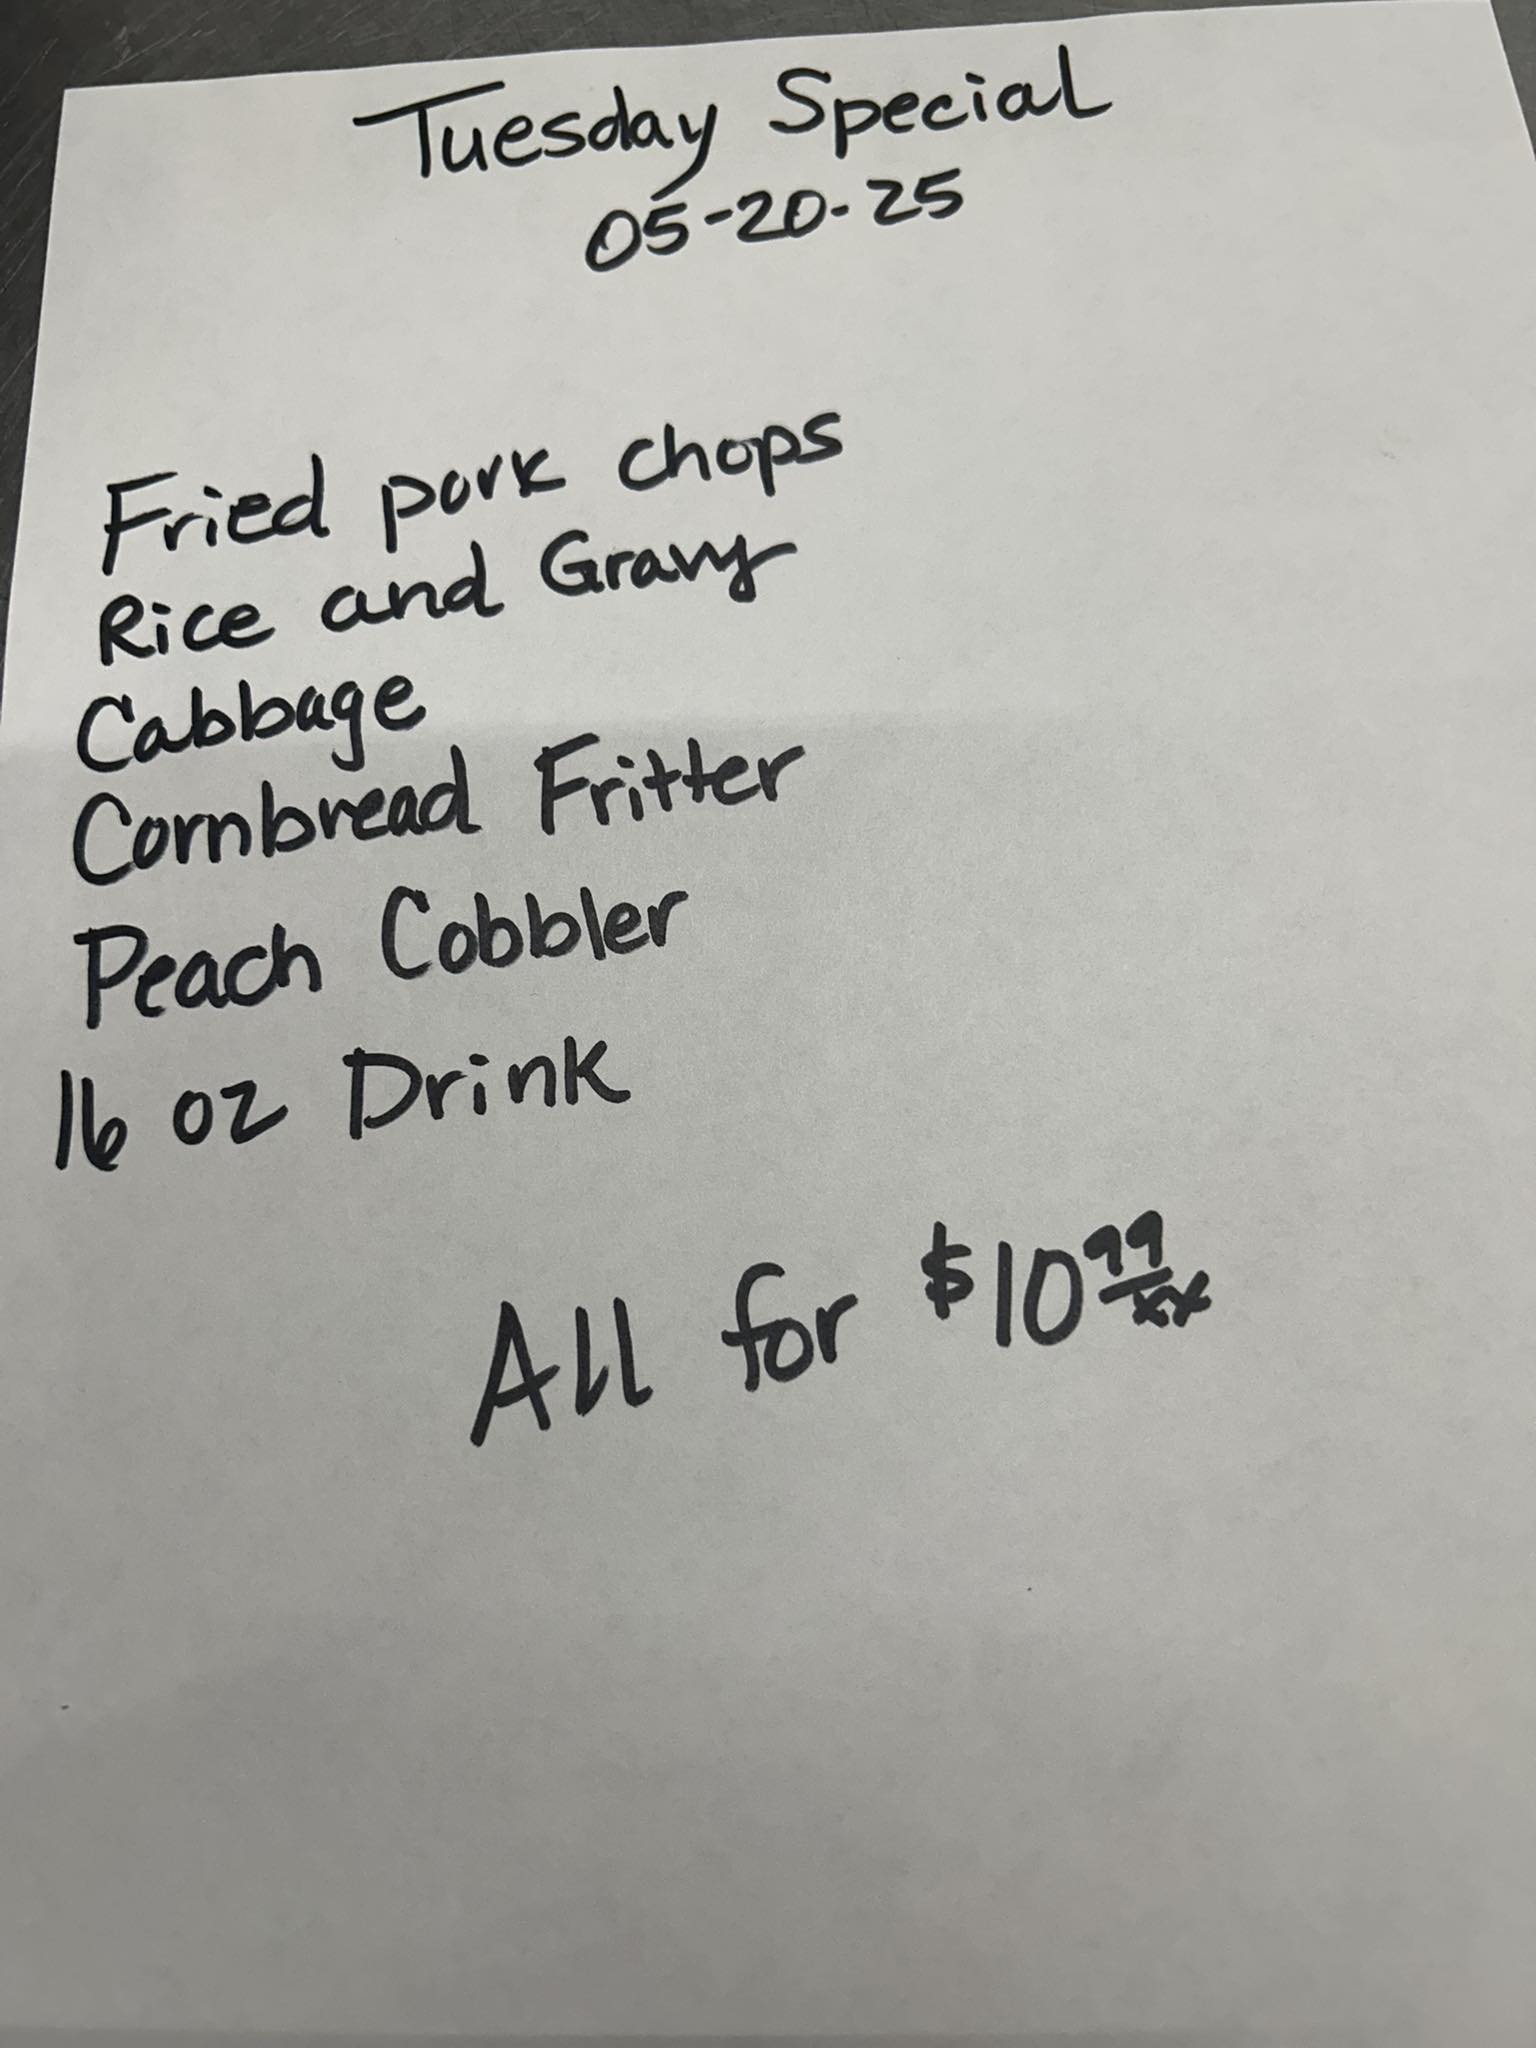 Tuesday Special
05-20-25
Fried pork chops
Rice and Gravy
Cabbage
Cornbread Fritter
Peach Cobbler
16 oz Drink
All for $10 99/xx